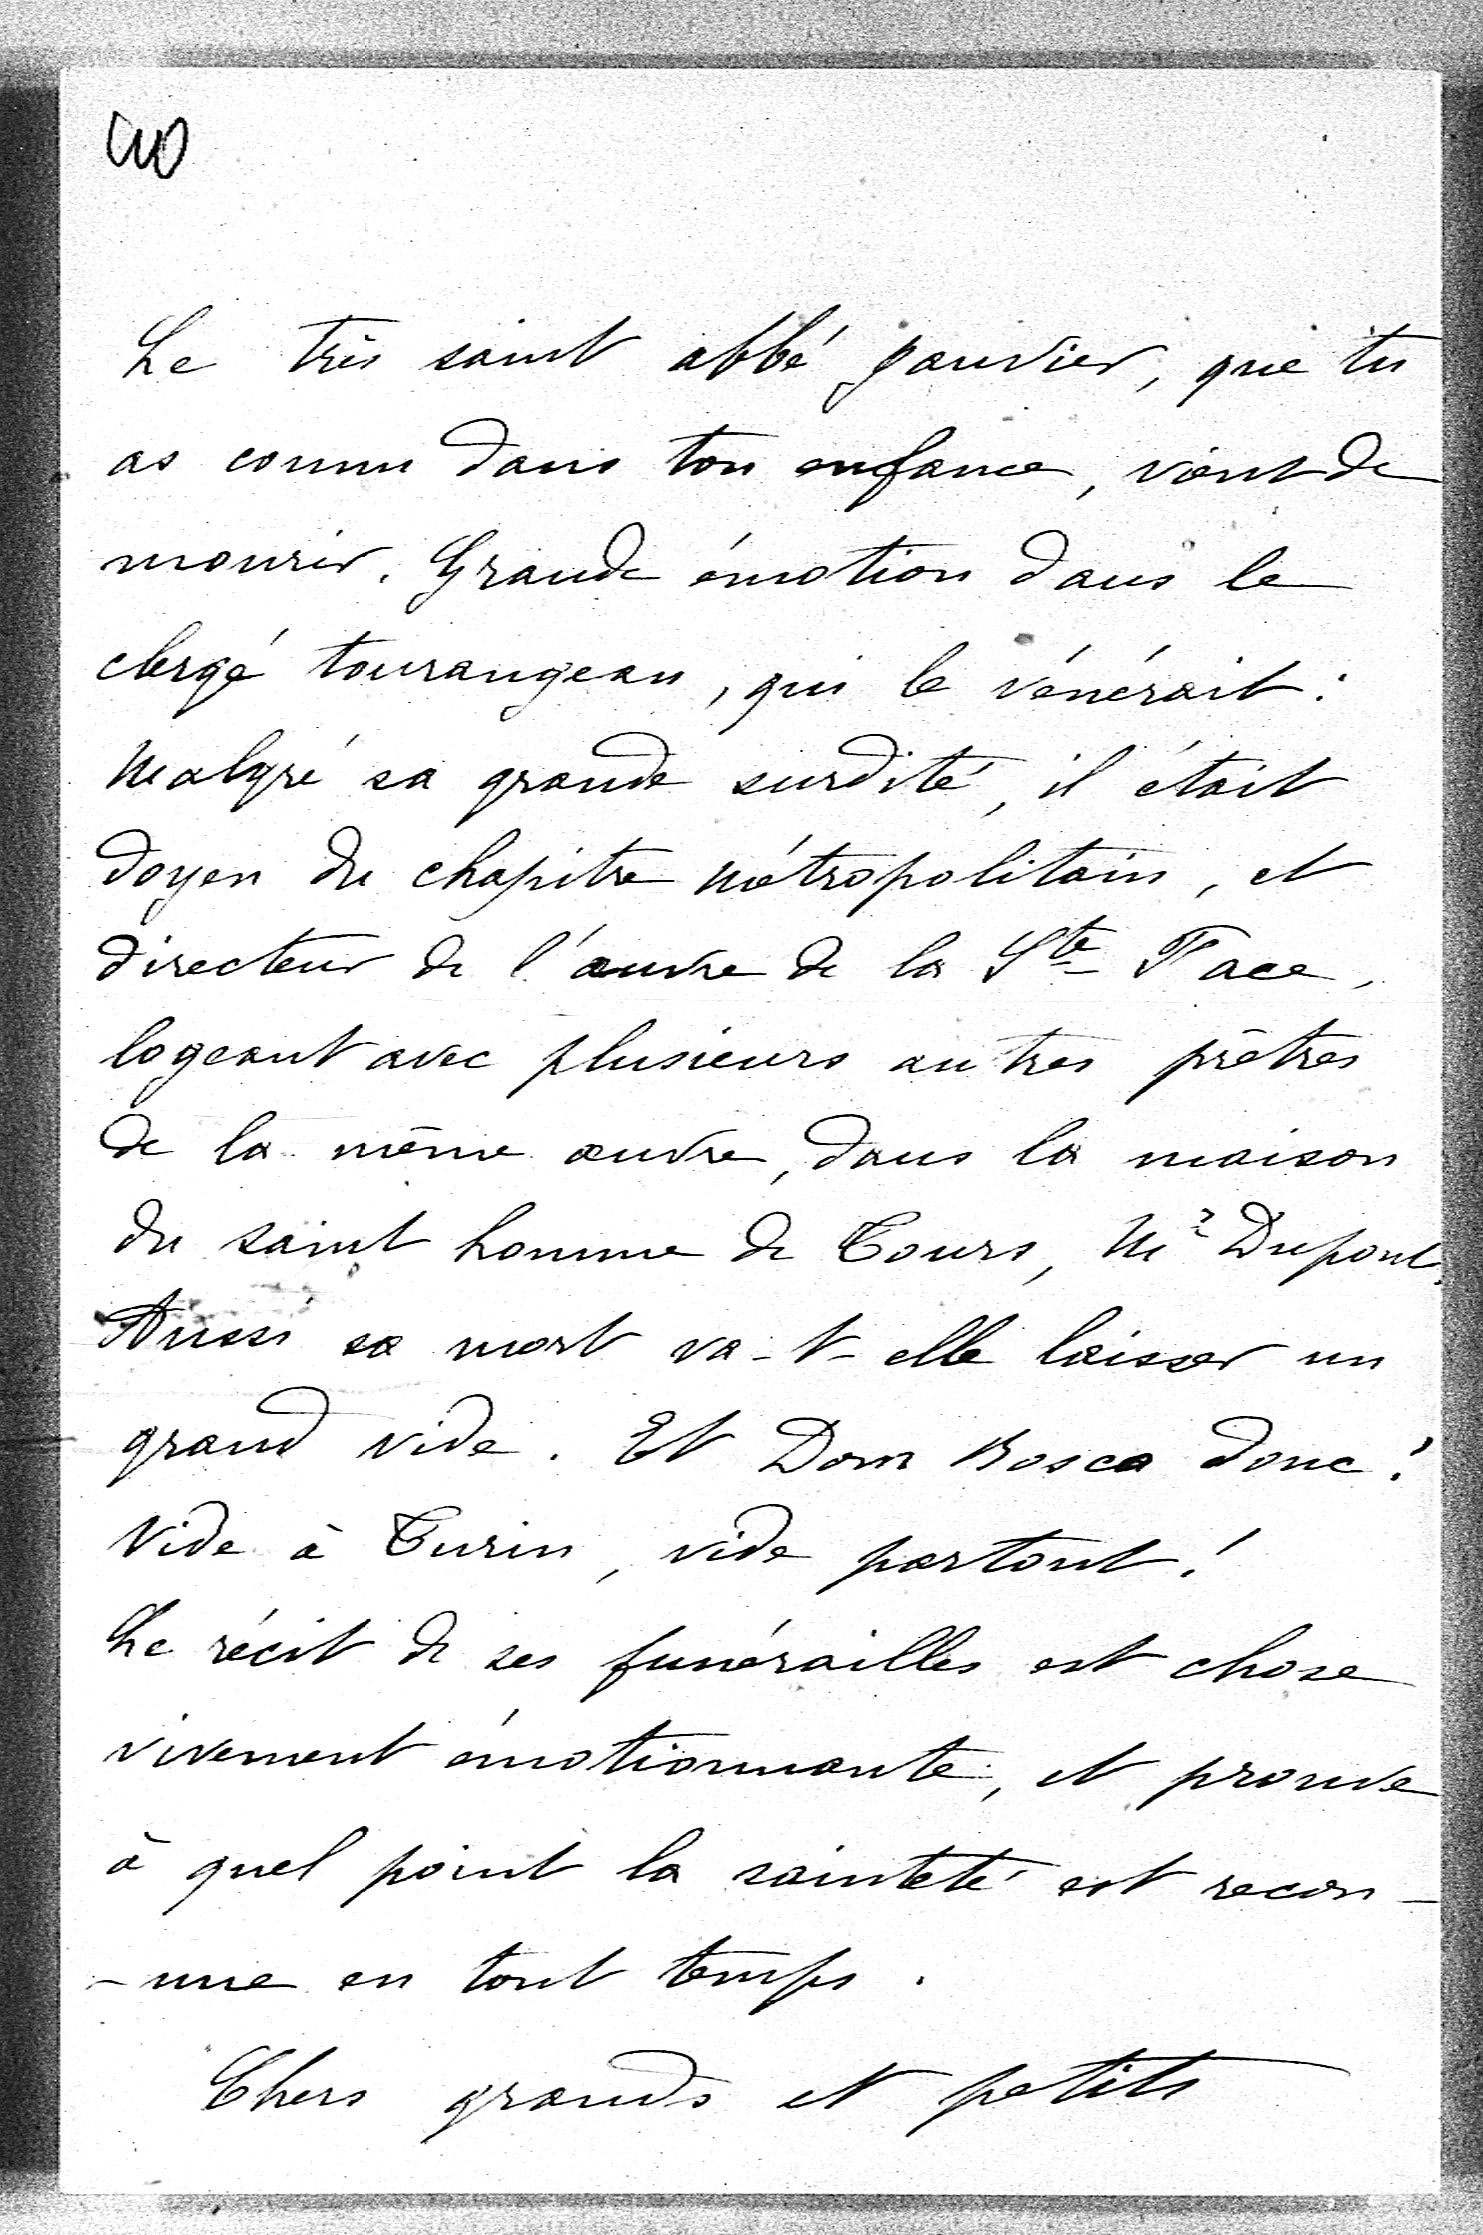 Le très saint abbé Janvier, que tu
as connu dans ton enfance, vient de
mourir. Grande émotion dans le
clergé tourangeau, qui le vénérait :
Malgré sa grande surdité, il était
doyen du chapitre métropolitain, et
directeur de l'œuvre de la Ste Face,
logeant avec plusieurs autres prêtres
de la même œuvre, dans la maison
du saint homme de Tours, Mr Dupont.
Aussi sa mort va-t-elle laisser un
grand vide. Et Dom Bosco donc !
Vide à Turin, vide partout !
Le récit de ses funérailles est chose
vivement émotionnante, et prouve
à quel point la sainteté est recon-
-nue en tout temps.
Chers grands et petits